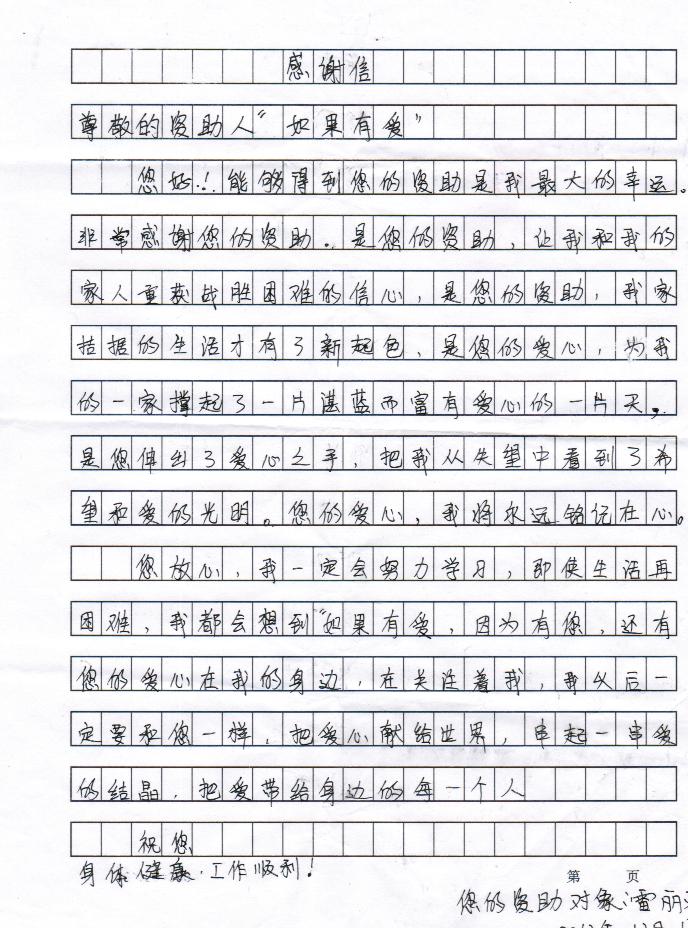 感谢信
尊敬的资助人“如果有爱”
您好！能够得到您的资助是我最大的幸运。
非常感谢您的资助。是您的资助，让我和我的
家人重获战胜困难的信心，是您的资助，我家
拮据的生活才有了新起色，是您的爱心，为我
的一家撑起了一片湛蓝而富有爱心的一片天，
是您伸出了爱心之手，把我从失望中看到了希
望和爱的光明。您的爱心，我将永远铭记在心。
您放心，我一定会努力学习，即使生活再
困难，我都会想到“如果有爱，因为有您，还有
您的爱心在我的身边，在关注着我，我以后一
定要和您一样，把爱心献给世界，串起一串爱
的结晶，把爱带给身边的每一个人
祝您
身体健康，工作顺利！
第 页
您的资助对象：雷丽